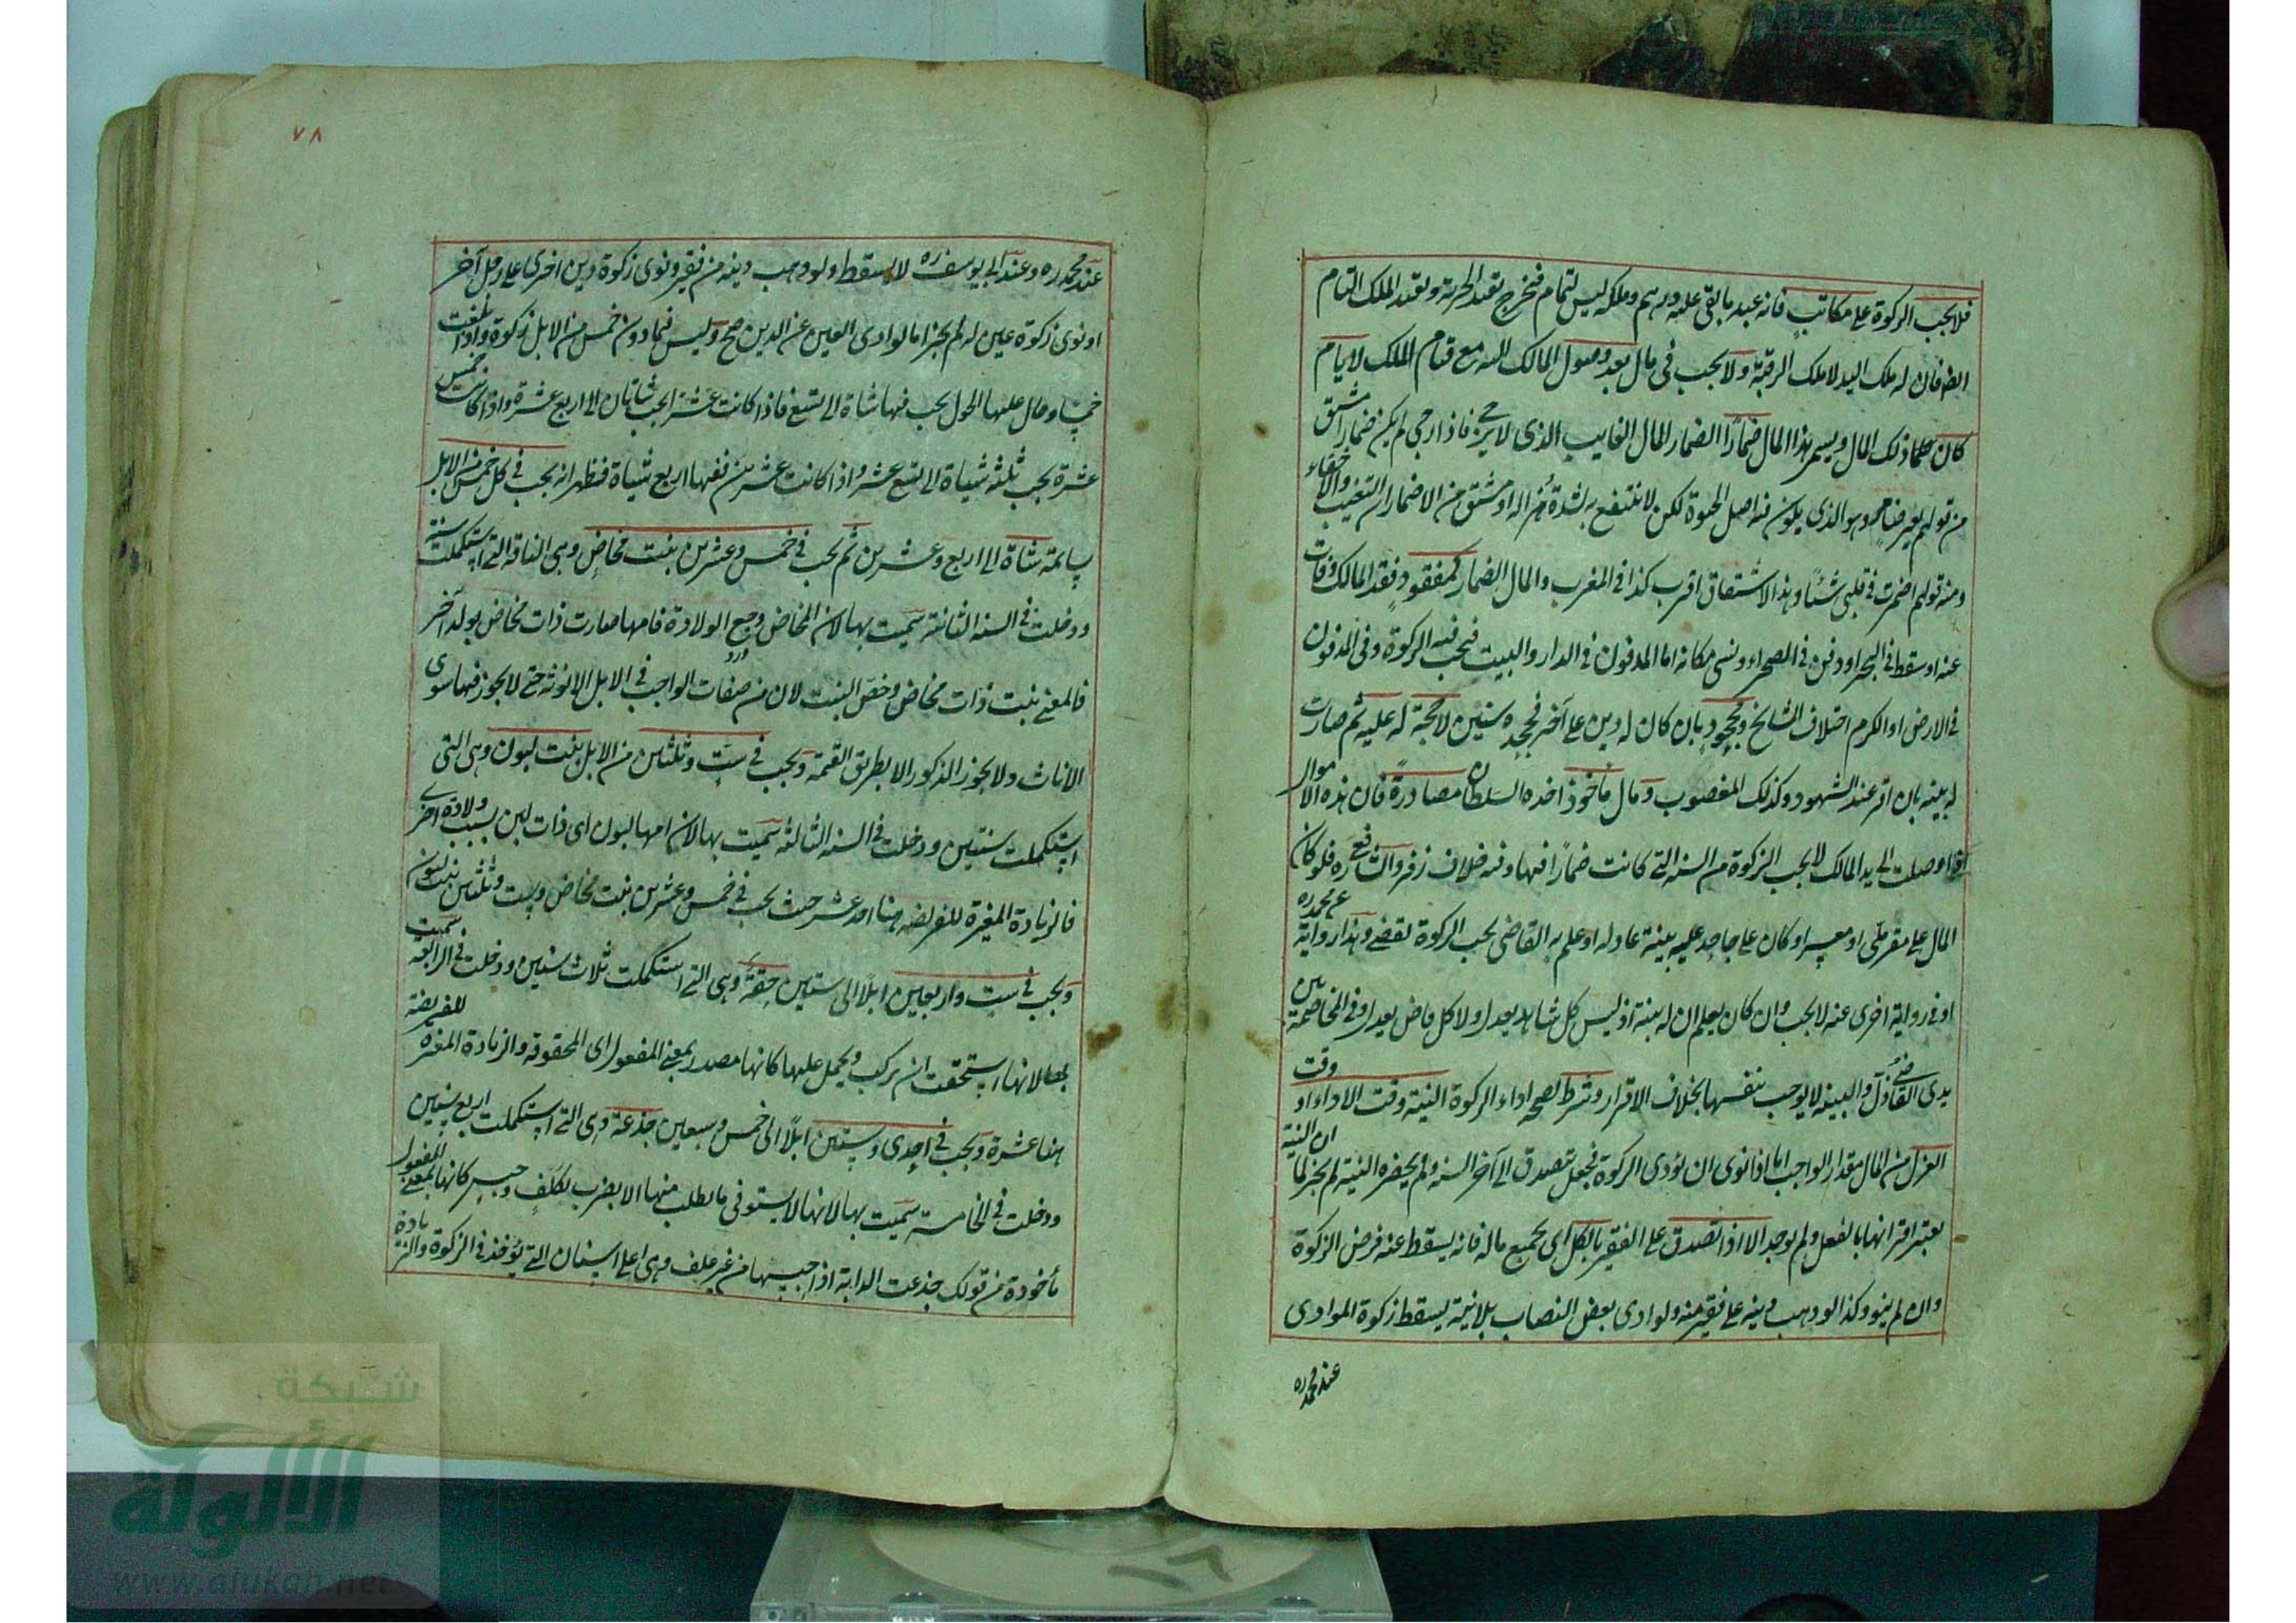 فلا يجب الزكوة على مكاتب فانه عبد ما بقى عليه درهم وملكه ليس بتمام فخرج بقيد الحرية وبقيد الملك التام
ايضا فان له ملك اليد لا ملك الرقبة ولا يجب فى مال بعد وصول المالك اليه مع قيام الملك لايام
كان ذلك المال ويسمى هذا المال ضمارًا الضمار المال الغايب الذى لا يرجى فاذا رجى لم يكن ضمارا مشتق
من قولهم بعير ضامر وهو الذى يكون فيه اصل الحيوة لكن لا ينتفع به لشدة هزاله او مشتق من الاضمار ان التغيب والاخفاء
ومنه قولهم اضمرت فى قلبى شيئًا وهذا الاشتقاق اقرب كذا فى المغرب والمال الضمار كمفقود فقد المالك وفات
عنه او سقط فى البحر او دفن فى الصحراء ونسى مكانه اما المدفون فى الدار والبيت فيجب فيه الزكوة وفى المدفون
فى الارض او الكرم اختلاف المشايخ ومجحود بان كان له دين على آخر فجحده سنين لا حجة له عليه ثم صارت
له بينه بان اقر عند الشهود وكذلك المغصوب ومال مأخوذ اخذه السلطان مصادرة فان هذه الاموال
اذا وصلت الى يد المالك لا يجب الزكوة من السنه التى كانت ضمارًا فيها وفيه خلاف زفر والشافعى ره فلو كان
المال على مقر ملى او معسر او كان على جاحد عليه بينة عادلة او علم به القاضى يجب الزكوة لقضى وهذا رواية عن محمد ره
او فى رواية اخرى عنه لا يجب وان كان يعلم ان له بينة اذ ليس كل شاهد يعدل ولا كل قاض يعدل وفى المخاصمة بين
يدى القاضى ذل والبينه لا يوجب بنفسها بخلاف الاقرار وشرط لصحه اداء الزكوة النية وقت الاداء او وقت
العزل من المال مقدار الواجب اما اذا نوى ان يؤدى الزكوة فجعل يتصدق الى آخر السنه ولم يحضره النية لم يجز لما ان النية
يعتبر اقترانها بالفعل ولم يوجد الا اذا تصدق على الفقير بالكل اى بجميع ماله فانه يسقط عنه فرض الزكوة
وان لم ينو وكذا لو وهب دينه على فقير منه ولو ادى بعض النصاب بلا نية يسقط زكوة المؤدى
عند محمد ره
٧٨
عند محمد ره وعند ابى يوسف ره لا يسقط ولو وهب دينه من فقير ونوى زكوة دين اخرى على رجل آخر
او نوى زكوة عين له لم يجز اما لو ادى العين عن الدين صح وليس فيما دون خمس من الابل زكوة واذا بلغت
خمسًا وحال عليها الحول يجب فيها شاة الى تسع فاذا كانت عشرا يجب شاتان الى اربع عشرة واذا كانت خمس
عشرة يجب ثلثه شياة الى تسع عشر واذا كانت عشرين ففيها اربع شياة فظهر انه يجب فى كل خمس من الابل
سايمة شاة الى اربع وعشرين ثم يجب فى خمس وعشرين بنت مخاض وهى الناقة التى استكملت سنة
ودخلت فى السنه الثانية سميت بها لان المخاض وجع الولادة فامها صارت ذات مخاض بولد آخر
فالمعنى بنت ذات مخاض وخص البنت لان من صفات الواجب فى الابل الانوثه حتى لا يجوز فيها سوى
الاناث ولا يجوز الذكور الا بطريق القيمة ويجب فى ست وثلثين من الابل بنت لبون وهى التى
استكملت سنتين ودخلت فى السنه الثالثه سميت بها لان امها لبون اى ذات لبن بسبب ولادة اخرى
فالزيادة المغيرة للفريضه هنا احد عشر حيث يجب فى خمس وعشرين بنت مخاض وست وثلثين بنت لبون
ويجب فى ست واربعين ابلًا الى ستين حقة وهى التى استكملت ثلاث سنين ودخلت فى الرابعة سميت
بها لانها استحقت ان يركب ويحمل عليها كانها مصدر بمعنى المفعول اى المحقوقه والزيادة المغيرة للفريضة
هنا عشرة ويجب فى احدى وستين ابلًا الى خمس وسبعين جذعة وهى التى استكملت اربع سنين
ودخلت فى الخامسة سميت بها لانها لا يستوفى ما يطلب منها الا بضرب تكلف وحبس كانها بمعنى المفعول
مأخودة من قولك جذعت الدابة اذا حبستها من غير علف وهى اعلى اسنان التى يؤخذ فى الزكوة والزيادة
شبكة
الألوكة
www.alukah.net